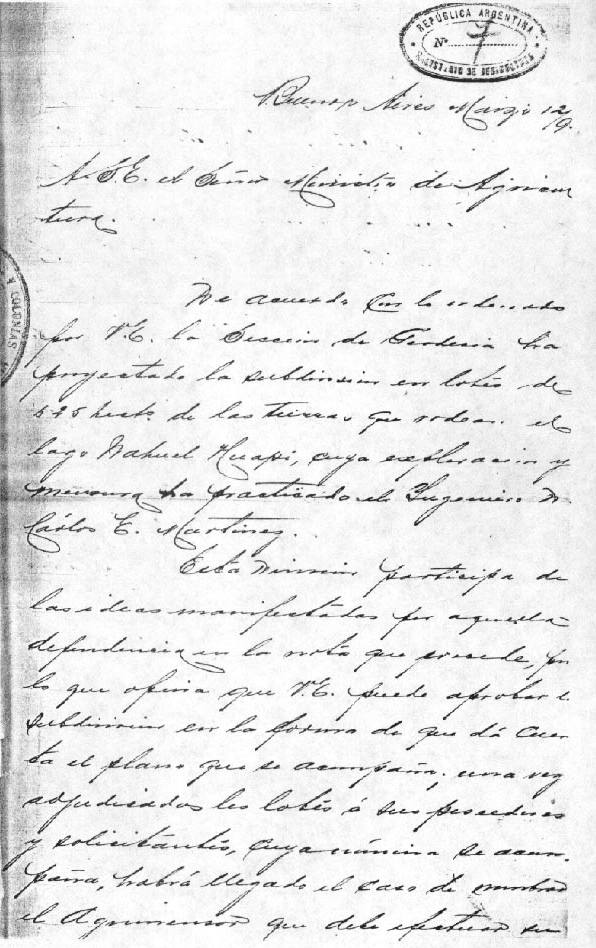 REPÚBLICA ARGENTINA
Nº 7
MINISTERIO DE AGRICULTURA
Buenos Aires Marzo 12/9.
A S.E. el Señor Ministro de Agricul
tura.
Y COLONIAS
De acuerdo con lo ordenado
por V.E. la Sección de Geodesia ha
proyectado la subdivision en lotes de
625 hects de las tierras que rodean el
lago Nahuel Huapi, cuya exploracion y
mensura ha practicado el Ingeniero Dn
Cárlos E. Martinez.
Esta Division participa de
las ideas manifestadas por aquella
dependencia en la nota que precede, por
lo que opina que V.E. puede aprobar
subdivision en la forma de que dá cuen
ta el plano que se acompaña; una vez
adjudicados los lotes á sus poseedores
y solicitantes, cuya nómina se acom-
paña, habrá llegado el caso de nombrar
el Agrimensor que debe efectuar su